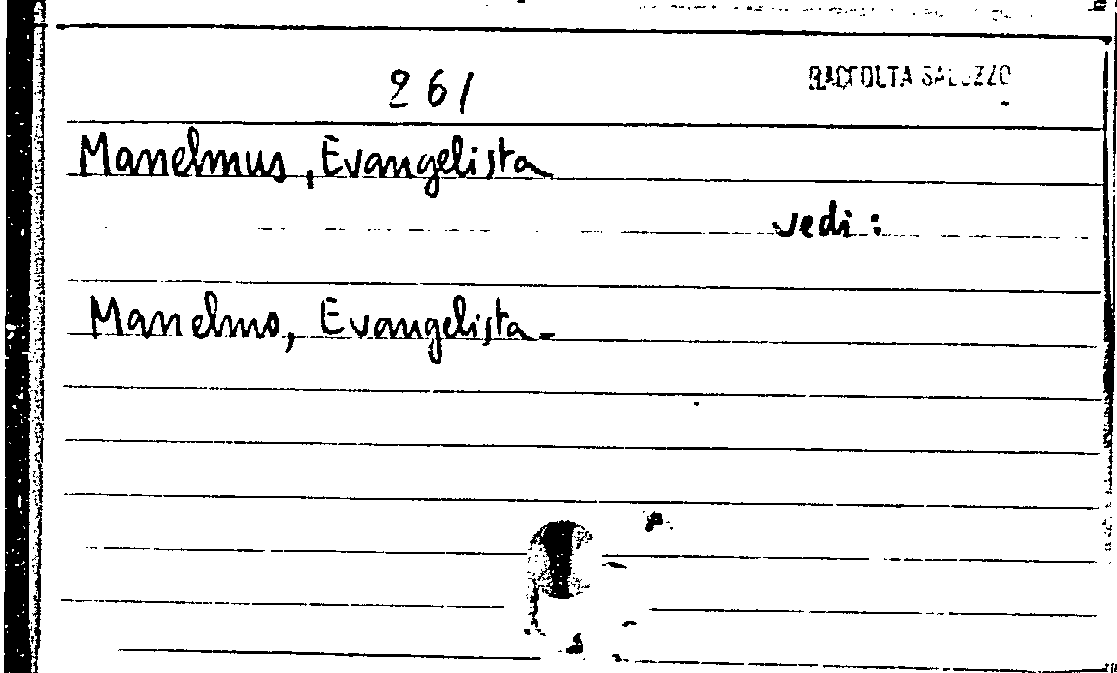 261
RACCOLTA SALUZZO
Manelmus, Evangelista
vedi:
Manelmo, Evangelista-